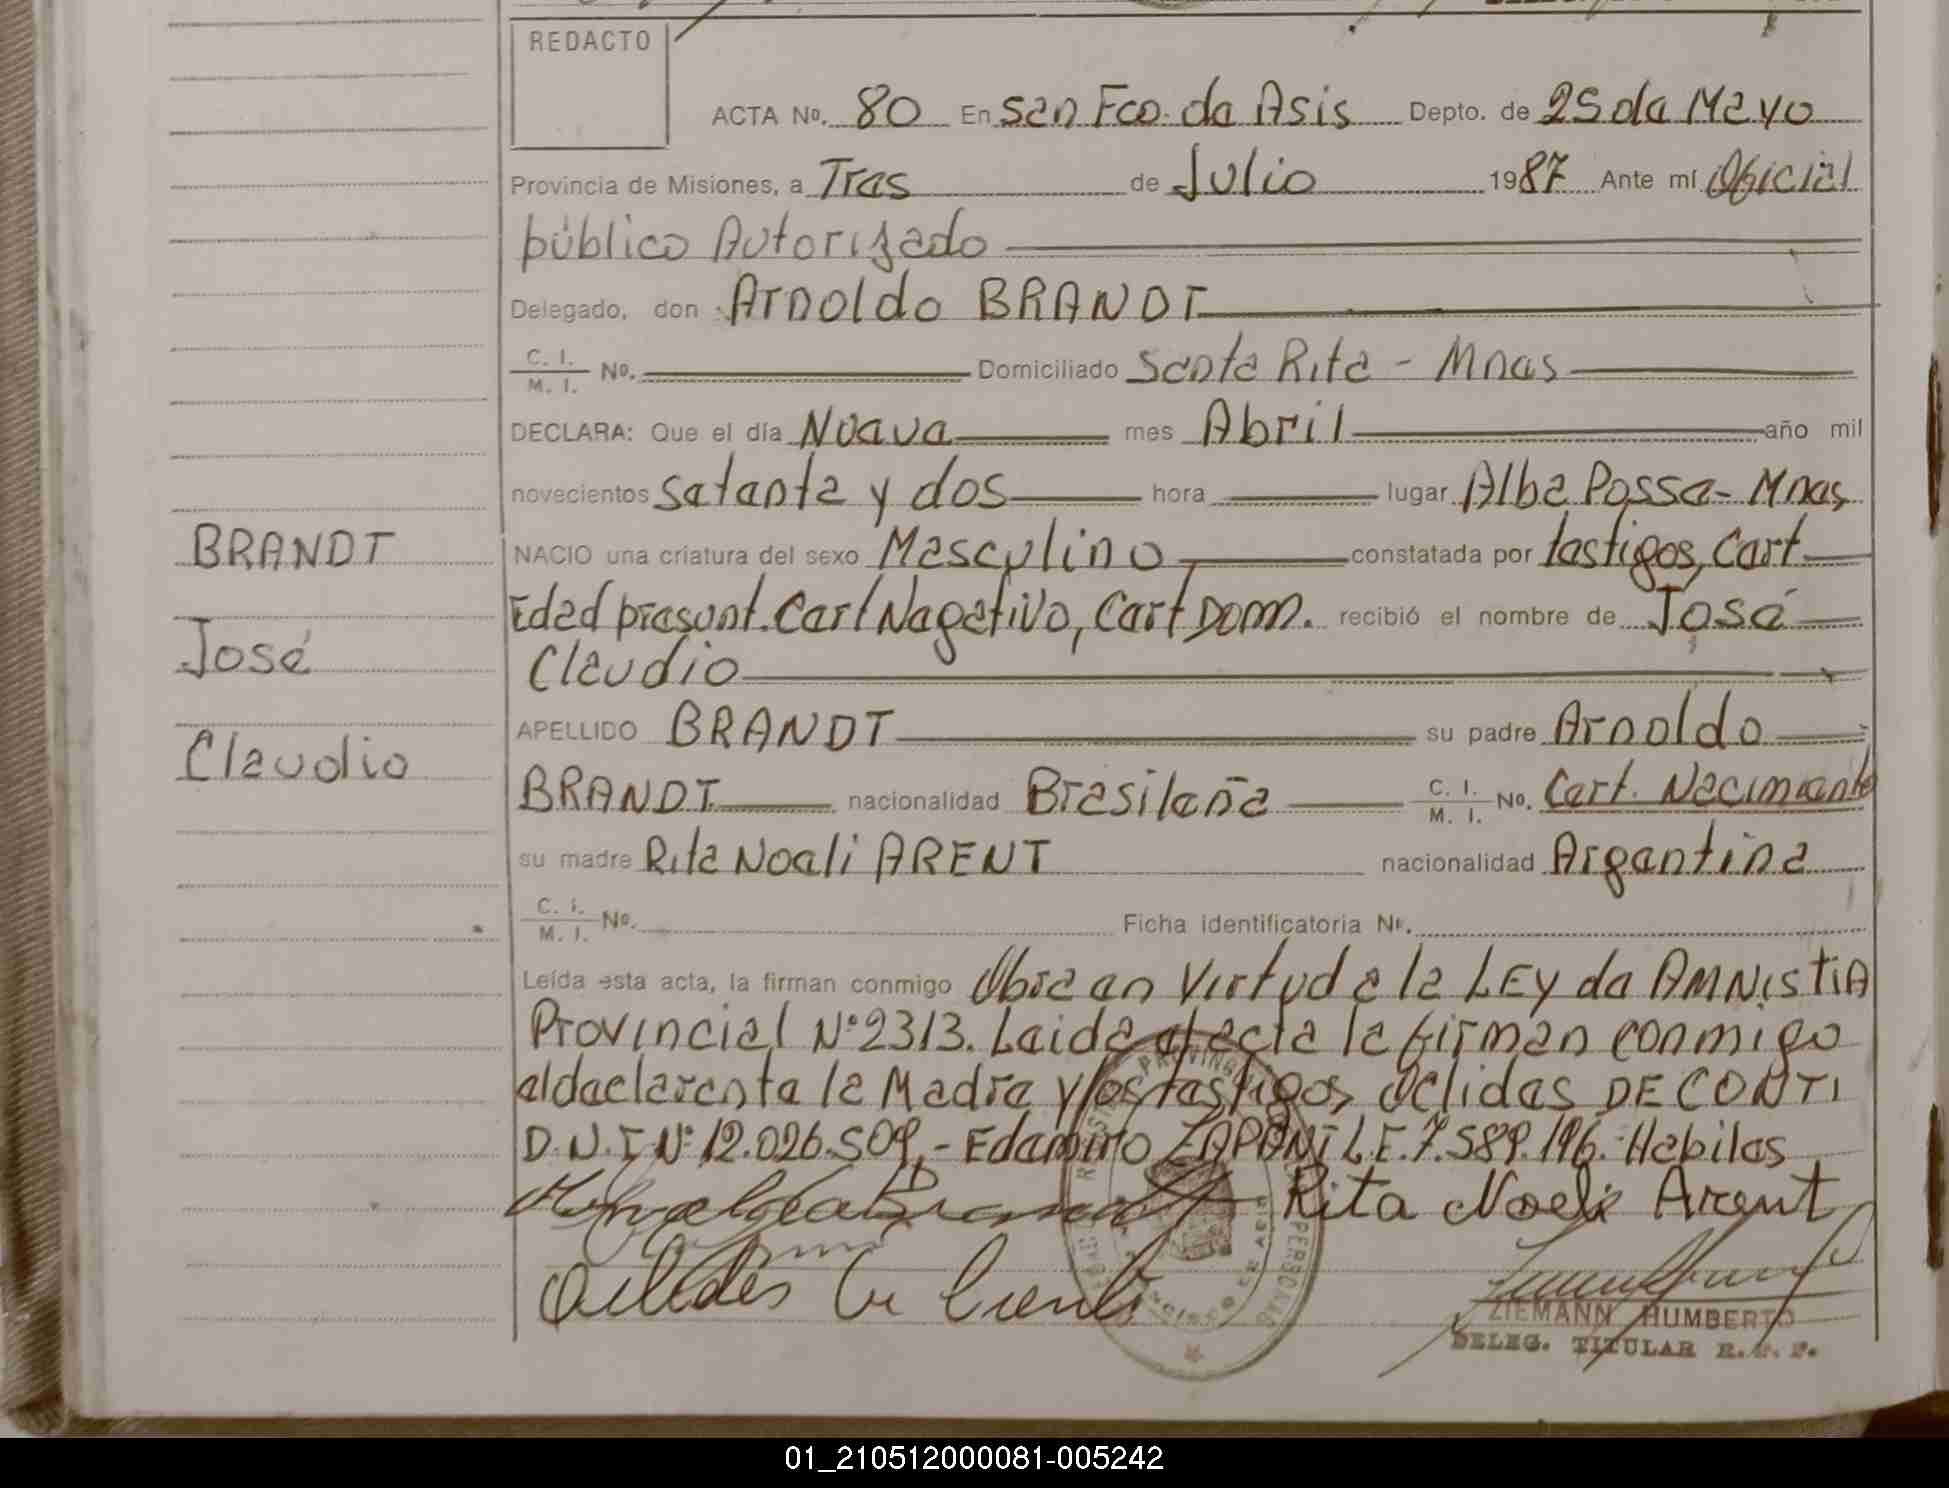 REDACTO
ACTA Nº. 80 En San Fco. de Asis Depto. de 25 de Mayo
Provincia de Misiones, a Tres de Julio 1987 Ante mí Oficial
público Autorizado
Delegado, don Arnoldo BRANDT
C. I. / M. I. Nº. Domiciliado Santa Rita - Mnes
DECLARA: Que el día Nueve mes Abril año mil
novecientos setenta y dos hora lugar Alba Posse - Mnes
BRANDT
NACIO una criatura del sexo Masculino constatada por testigos, Cert
Edad presunt. Cert Negativo, Cert Dom. recibió el nombre de José
José
Claudio
APELLIDO BRANDT su padre Arnoldo
Claudio
BRANDT nacionalidad Brasileña C. I. / M. I. Nº. Cert. Nacimiento
su madre Rita Noeli ARENT nacionalidad Argentina
C. I. / M. I. Nº. Ficha identificatoria Nº.
Leída esta acta, la firman conmigo Obra en Virtud a la LEY de AMNISTIA
Provincial Nº 2313. Leida el acta la firman conmigo
el declarante la Madre y los testigos, Oclides DE CONTI
D.N.I Nº 12.026.509,- Edamiro ZAPANI L.E. 7.589.196. Habiles
Rita Noeli Arent
ZIEMANN HUMBERTO
DELEG. TITULAR R. P. P.
01_210512000081-005242